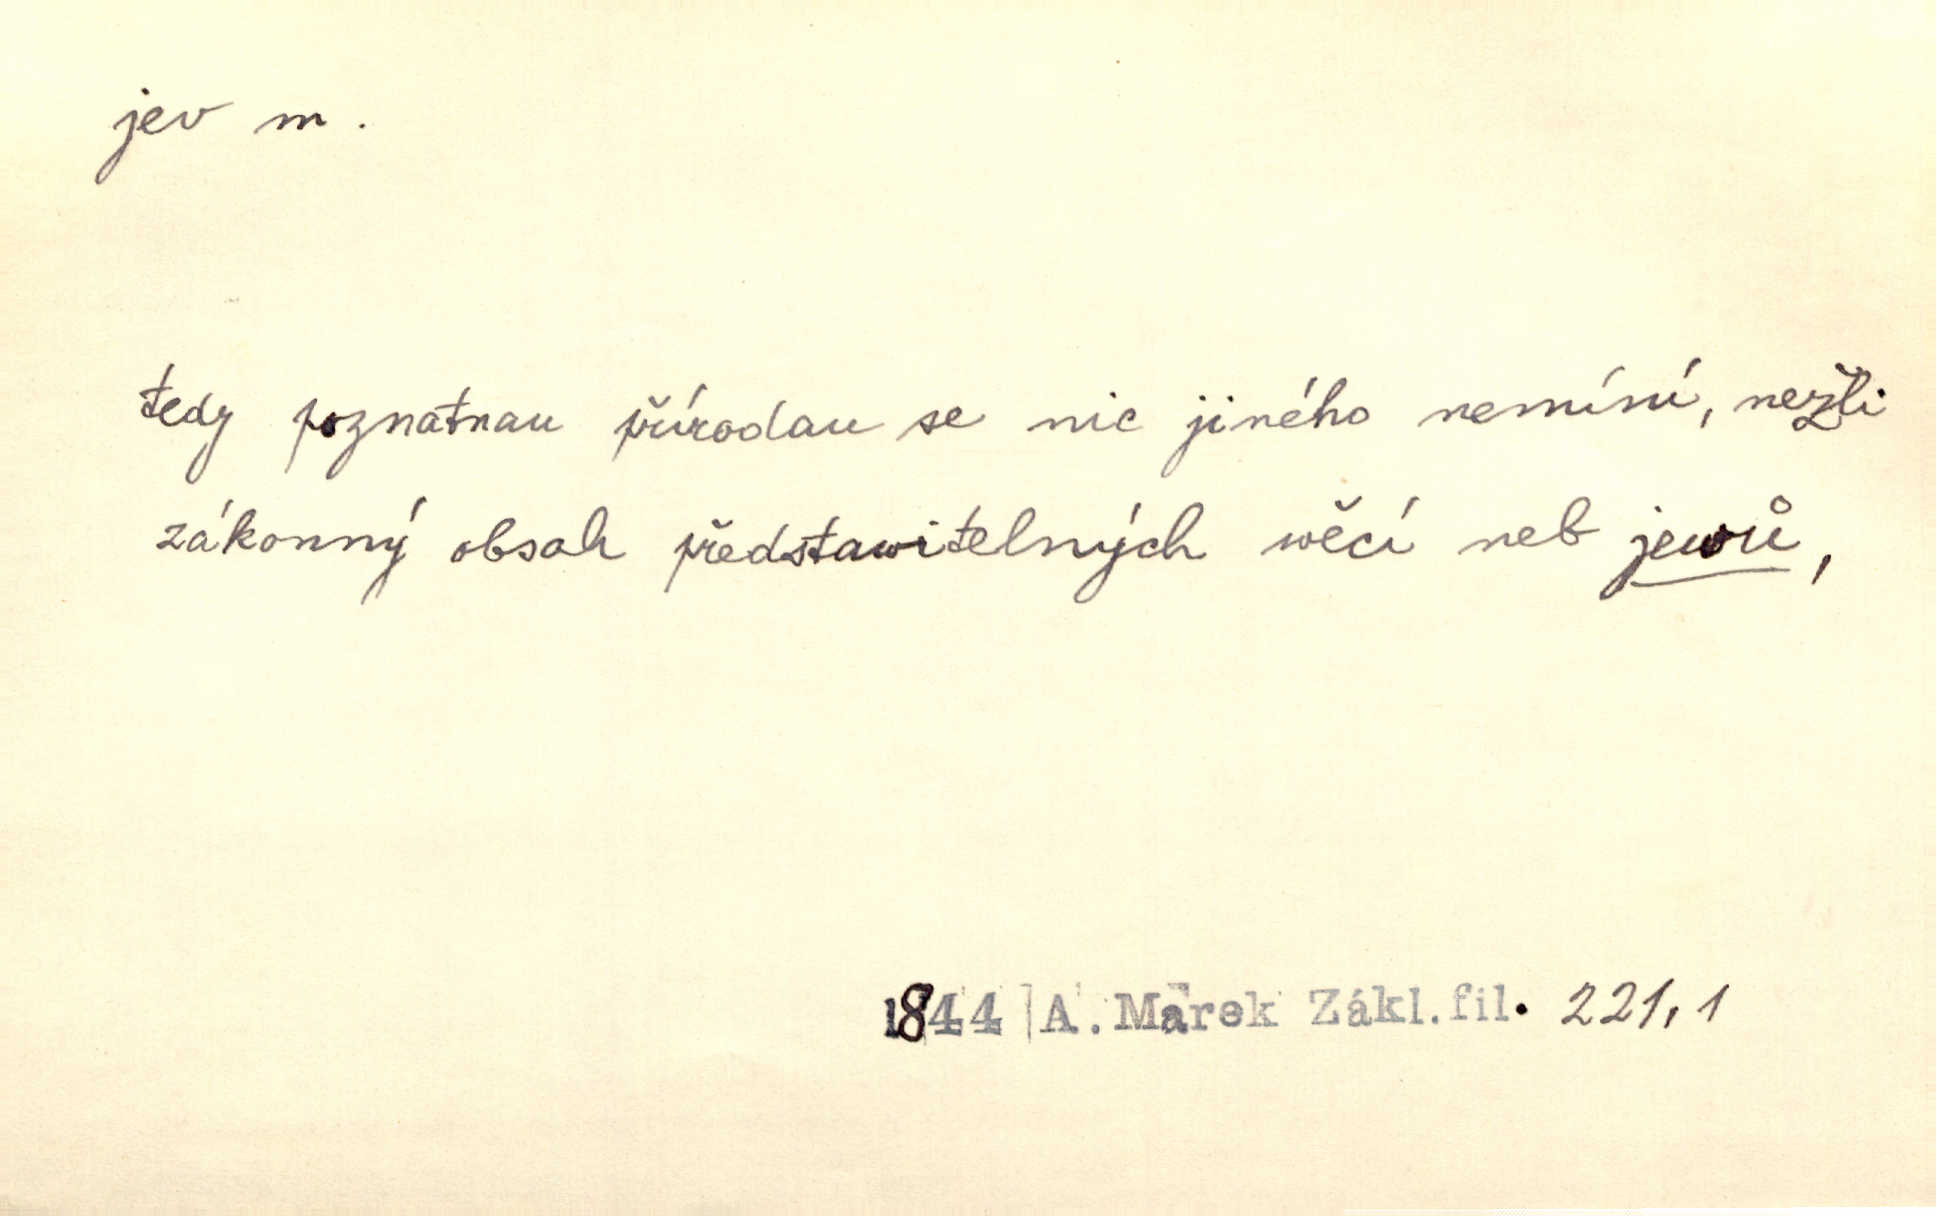 jev m.
tedy poznatnau přírodau se nic jiného nemíní, nežli
zákonný obsah představitelných wěcí neb jewů,
1844 A. Marek Zákl. fil. 221,1